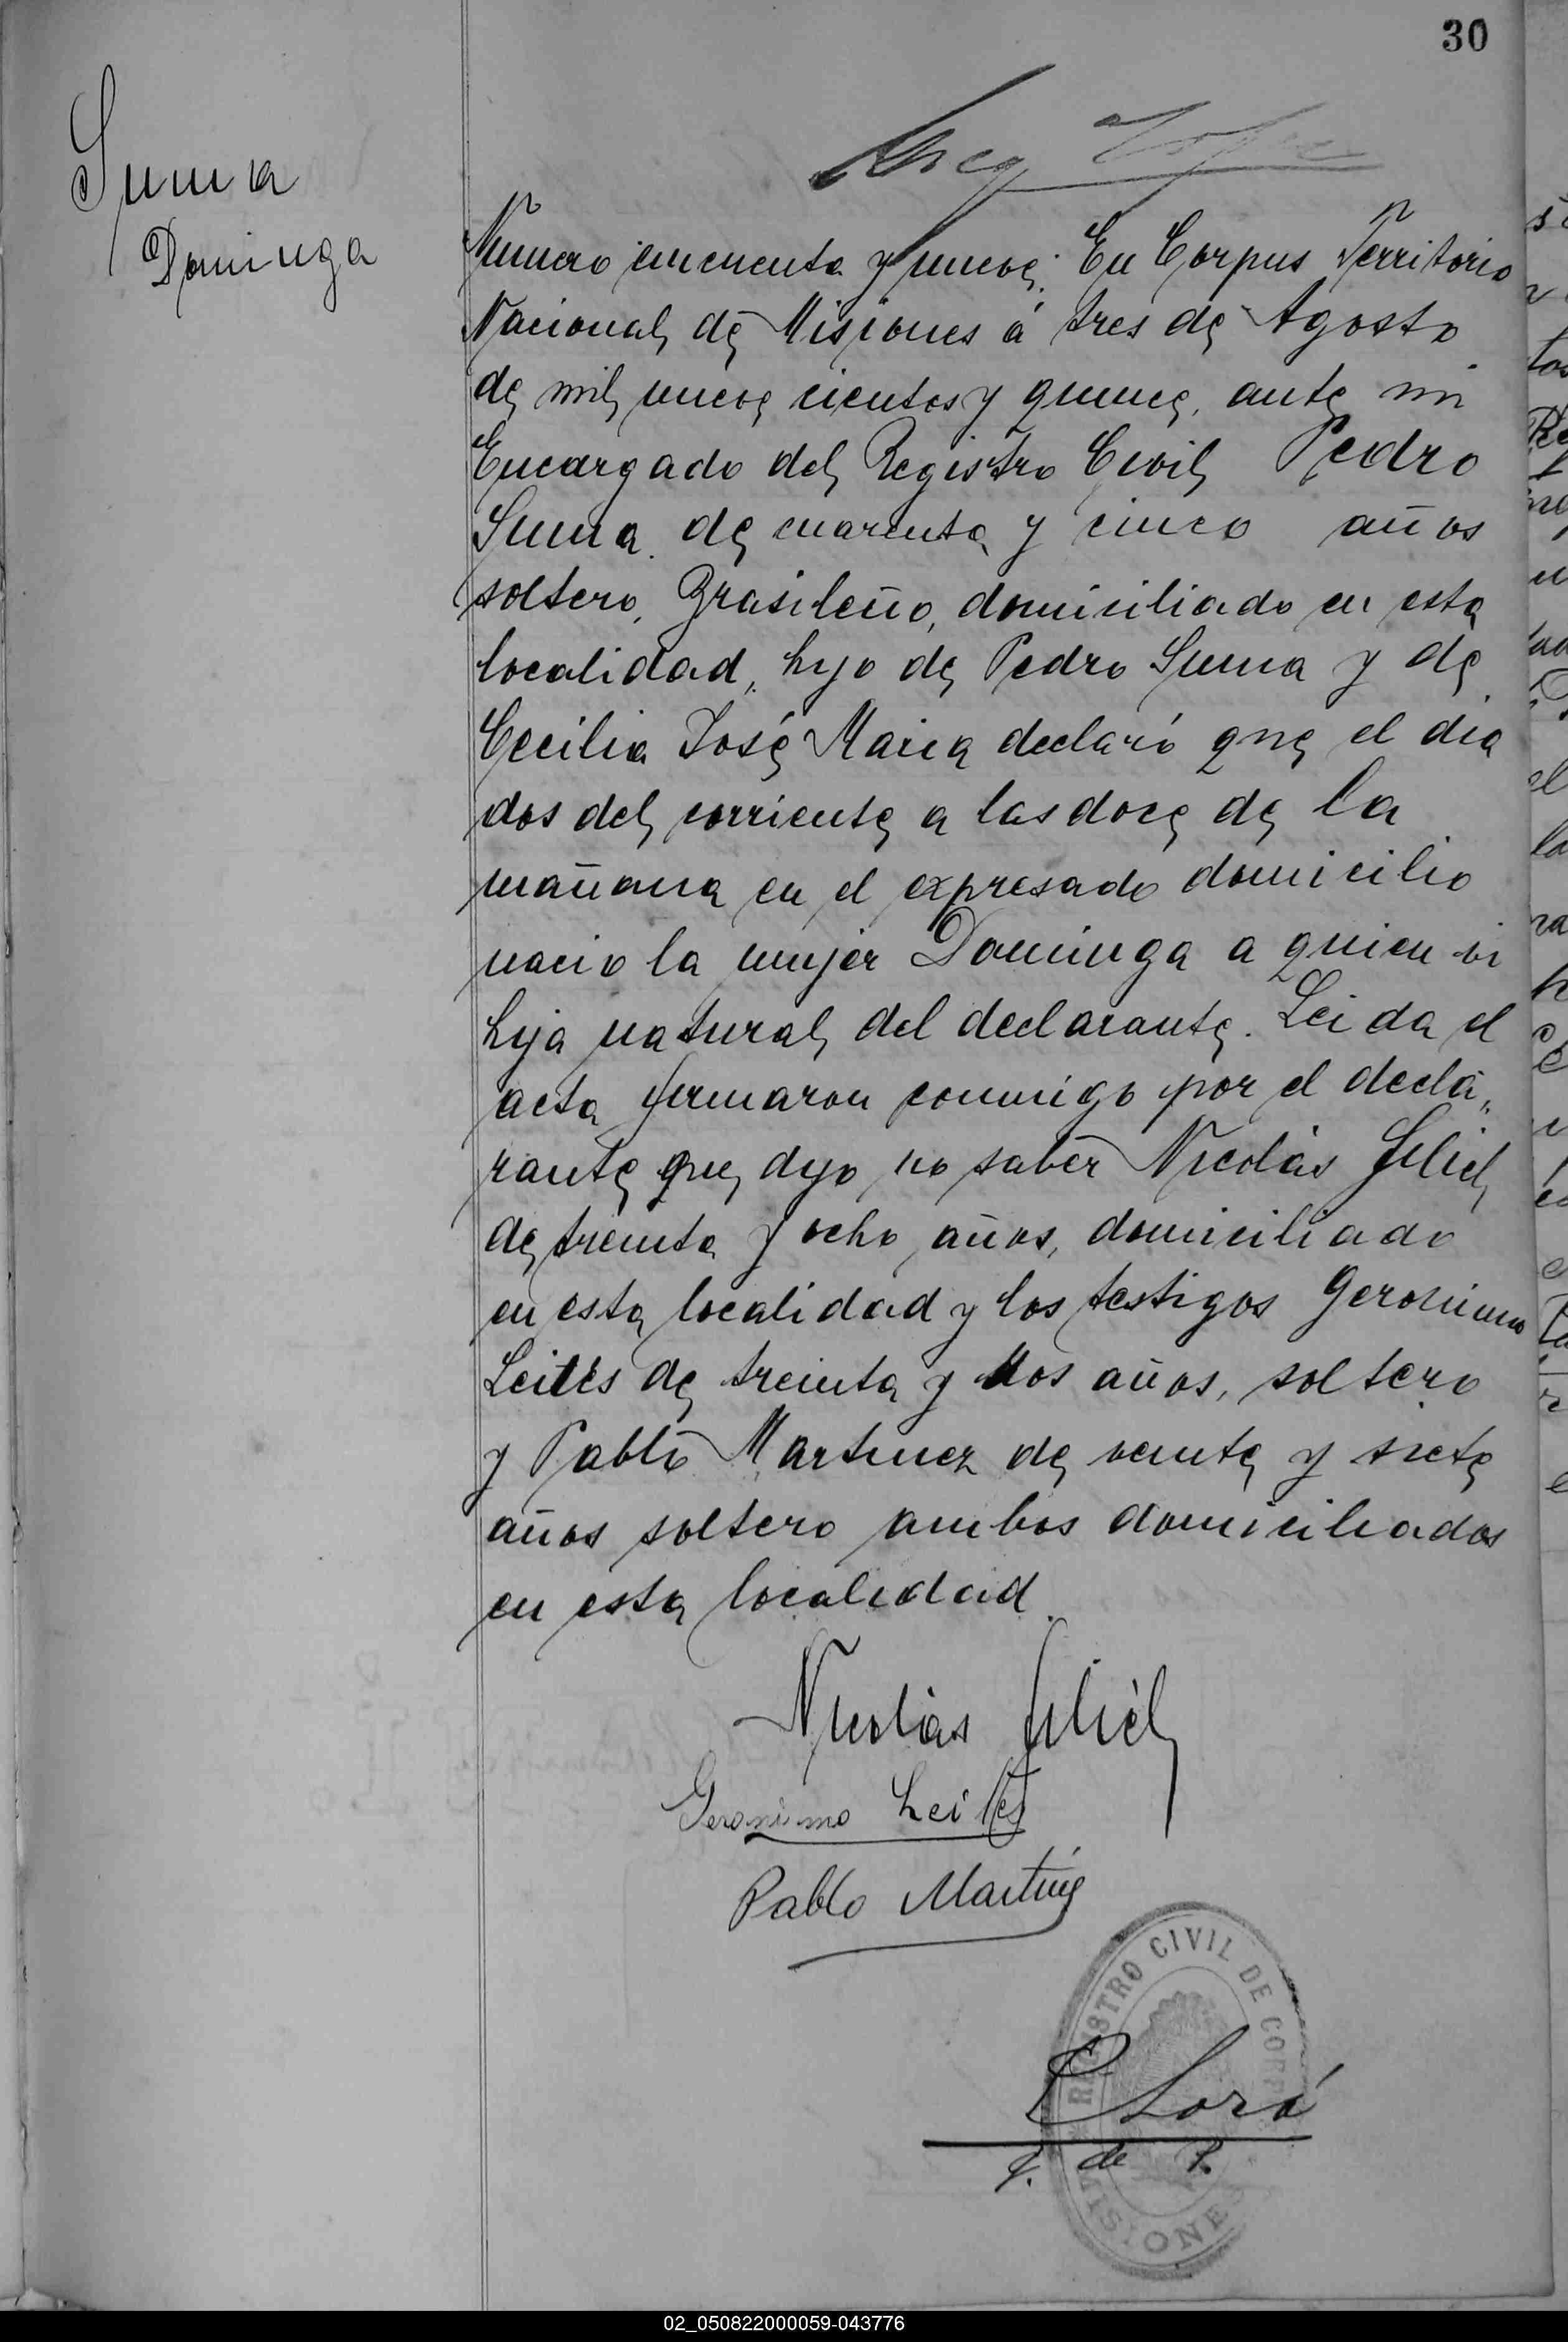 30
Suma
Dominga
Numero cincuenta y nueve. En Corpus Territorio
Nacional de Misiones á tres de Agosto
de mil nueve cientos y quince, ante mi
Encargado del Registro Civil Pedro
Suma de cuarenta y cinco años
soltero, Brasileño, domiciliado en esta
localidad, hijo de Pedro Suma y de
Cecilia José Maria declaró que el dia
dos del corriente a las doce de la
mañana en el expresado domicilio
nacio la mujer Dominga a quien vi
hija natural del declarante. Leida el
acta firmaron conmigo por el decla,,
rante que dijo no saber Nicolás
de treinta y ocho años, domiciliado
en esta localidad y los testigos Geronimo
Leites de treinta y dos años, soltero
y Pablo Martinez de veinte y siete
años soltero ambos domiciliados
en esta localidad.
Nicolás
Geronimo Leites
Pablo Martinez
REGISTRO CIVIL DE CORPUS
MISIONES
J. de P.
02_050822000059-043776